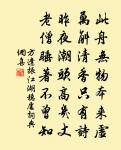 此舟無物本來虛
萬斛清香只有詩
昨夜潮頭高幾丈
老僧睡著不曾知
方逢振江湖虛詞典
網喜